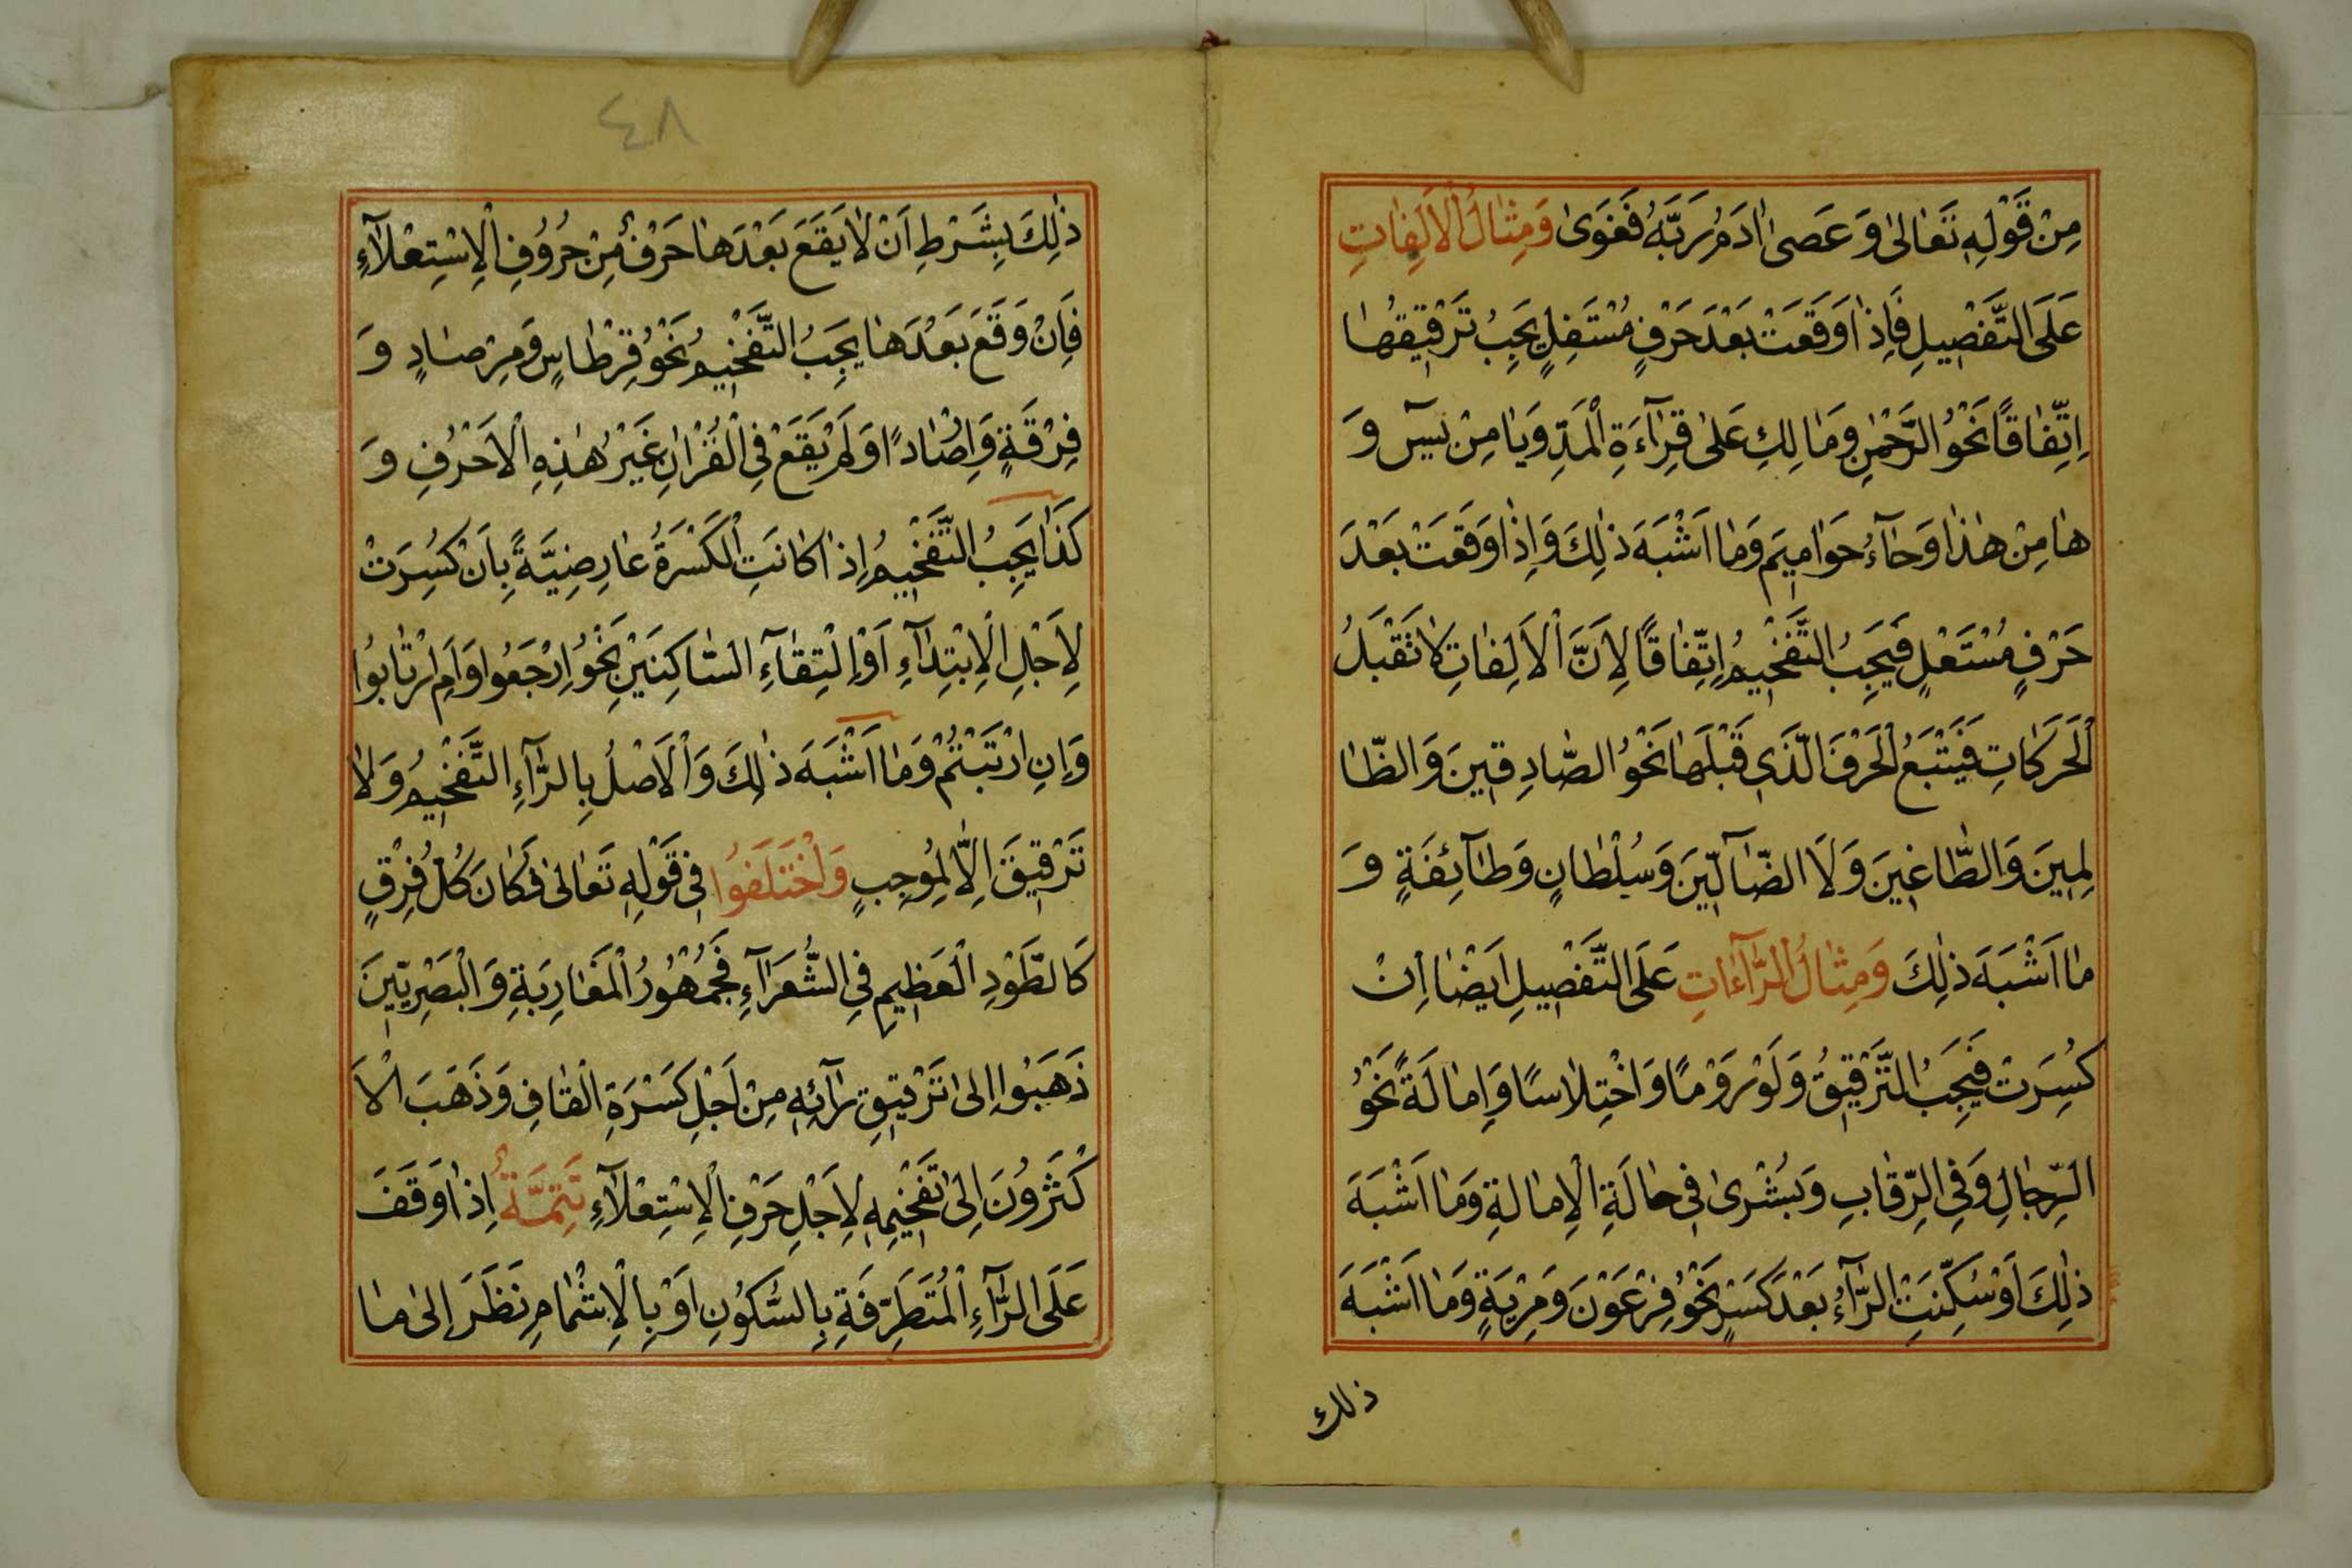 مِنْ قَوْلِهِ تَعَالٰى وَعَصٰى اٰدَمُ رَبَّهُ فَغَوٰى وَمِثَالُ الْاَلِفَاتِ
عَلَى التَّفْصِيلِ فَاِذَا وَقَعَتْ بَعْدَ حَرْفٍ مُسْتَفِلٍ يَجِبُ تَرْقِيقُهَا
اِتِّفَاقًا نَحْوُ الرَّحْمٰنِ وَمَالِكِ عَلٰى قِرَآءَةِ الْمَدِّ وَيَا مِنْ يٰسٓ وَ
هَا مِنْ هٰذَا وَحَآءُ حَوَامِيمَ وَمَا اَشْبَهَ ذٰلِكَ وَاِذَا وَقَعَتْ بَعْدَ
حَرْفٍ مُسْتَعْلٍ فَيَجِبُ التَّفْخِيمُ اِتِّفَاقًا لِاَنَّ الْاَلِفَاتِ لَا تَقْبَلُ
الْحَرَكَاتِ فَيَتْبَعُ الْحَرْفَ الَّذِي قَبْلَهَا نَحْوُ الصَّادِقِينَ وَالظَّا
لِمِينَ وَالطَّاغِينَ وَلَا الضَّآلِّينَ وَسُلْطَانٍ وَطَآئِفَةٍ وَ
مَا اَشْبَهَ ذٰلِكَ وَمِثَالُ الرَّاءَاتِ عَلَى التَّفْصِيلِ اَيْضًا اِنْ
كُسِرَتْ فَيَجِبُ التَّرْقِيقُ وَلَوْ رَوْمًا وَاخْتِلَاسًا وَاِمَالَةً نَحْوُ
الرِّجَالِ وَفِي الرِّقَابِ وَبُشْرٰى فِي حَالَةِ الْاِمَالَةِ وَمَا اَشْبَهَ
ذٰلِكَ اَوْ سُكِّنَتِ الرَّآءُ بَعْدَ كَسْرٍ نَحْوُ فِرْعَوْنَ وَمِرْيَةٍ وَمَا اَشْبَهَ
ذلك
٤٨
ذٰلِكَ بِشَرْطِ اَنْ لَا يَقَعَ بَعْدَهَا حَرْفٌ مِنْ حُرُوفِ الْاِسْتِعْلَآءِ
فَاِنْ وَقَعَ بَعْدَهَا يَجِبُ التَّفْخِيمُ نَحْوُ قِرْطَاسٍ وَمِرْصَادٍ وَ
فِرْقَةٍ وَاِرْصَادًا وَلَمْ يَقَعْ فِي الْقُرْاٰنِ غَيْرُ هٰذِهِ الْاَحْرُفِ وَ
كَذَا يَجِبُ التَّفْخِيمُ اِذَا كَانَتِ الْكَسْرَةُ عَارِضِيَّةً بِاَنْ كُسِرَتْ
لِاَجْلِ الْاِبْتِدَآءِ اَوْ اِلْتِقَآءِ السَّاكِنَيْنِ نَحْوُ اِرْجِعُوا وَاَمِ ارْتَابُوا
وَاِنِ ارْتَبْتُمْ وَمَا اَشْبَهَ ذٰلِكَ وَالْاَصْلُ بِالرَّآءِ التَّفْخِيمُ وَلَا
تَرْقِيقَ اِلَّا لِمُوجِبٍ وَاخْتَلَفُوا فِي قَوْلِهِ تَعَالٰى فَكَانَ كُلُّ فِرْقٍ
كَالطَّوْدِ الْعَظِيمِ فِي الشُّعَرَآءِ فَجُمْهُورُ الْمَغَارِبَةِ وَالْبَصْرِيّينَ
ذَهَبُوا اِلٰى تَرْقِيقِ رَآئِهِ مِنْ اَجْلِ كَسْرَةِ الْقَافِ وَذَهَبَ الْاَ
كْثَرُونَ اِلٰى تَفْخِيمِهِ لِاَجْلِ حَرْفِ الْاِسْتِعْلَآءِ تَتِمَّةٌ اِذَا وَقَفَ
عَلَى الرَّآءِ الْمُتَطَرِّفَةِ بِالسُّكُونِ اَوْ بِالْاِشْمَامِ نَظَرَ اِلٰى مَا